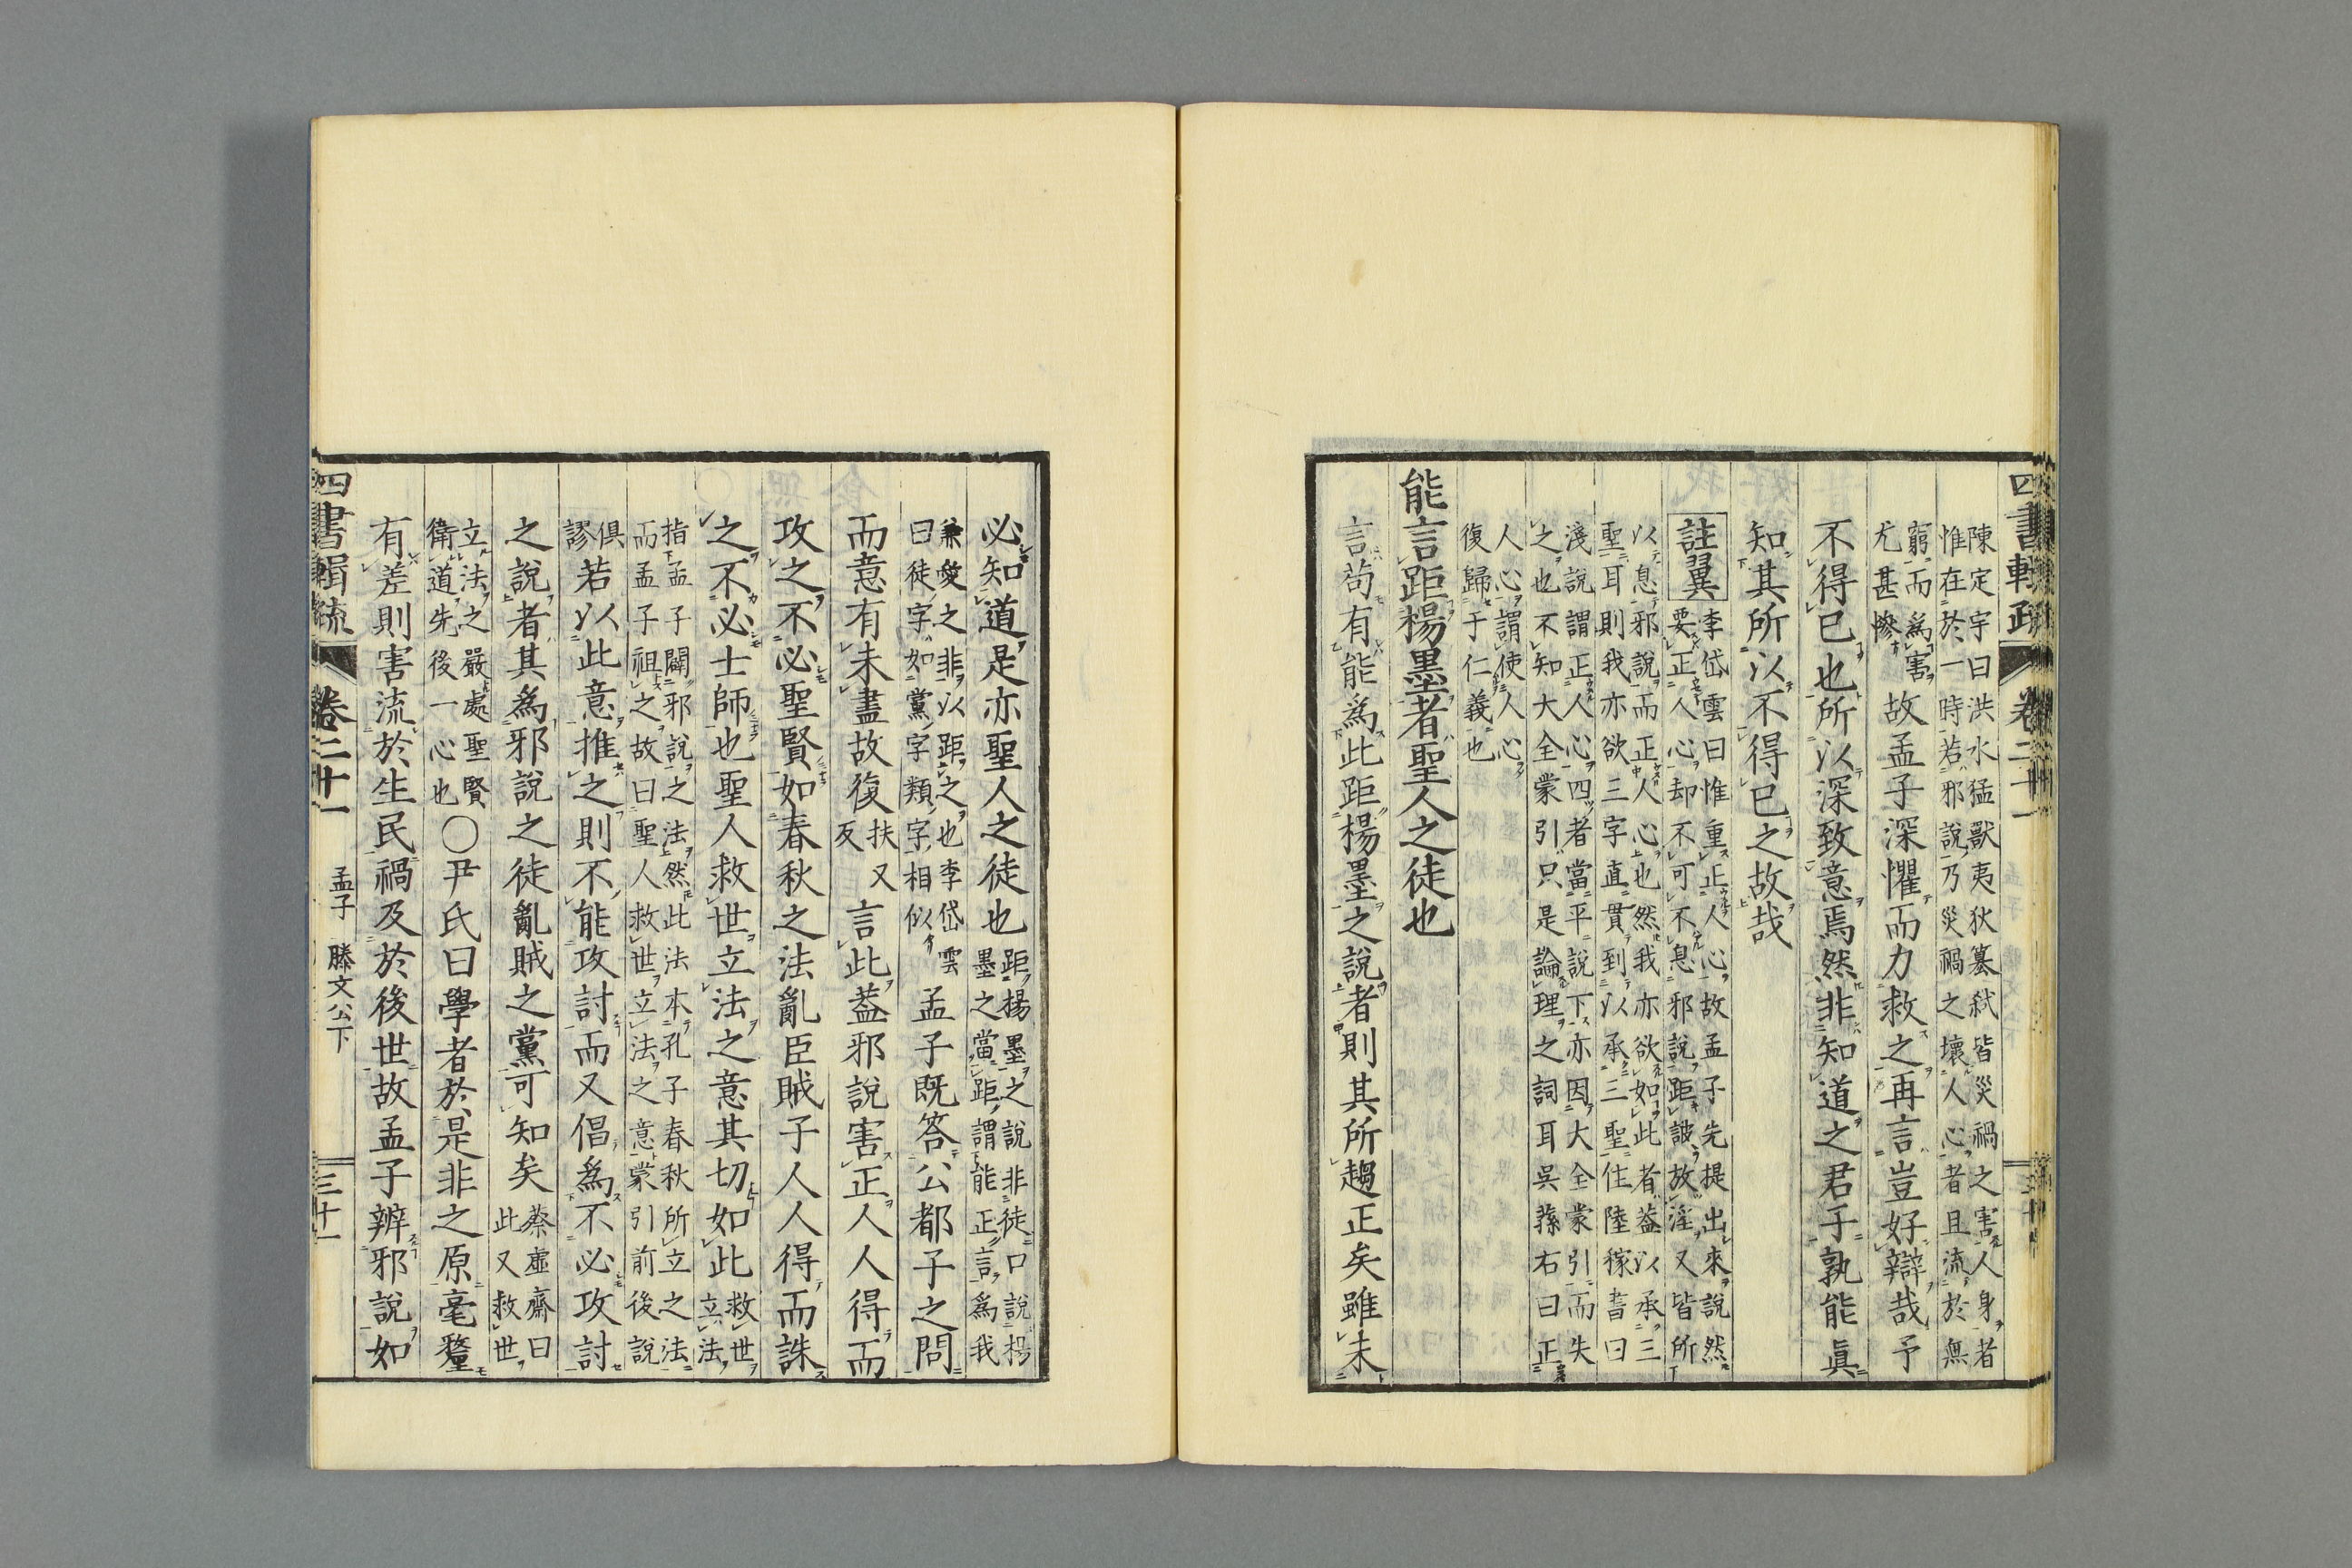 四書輯疏 卷二十一
陳定宇曰洪水猛獸夷狄簒弑皆災禍之害人身者
惟在於一時若邪說乃災禍之壞人心者且流於無
窮而爲害
尤甚慘
故孟子深懼而力救之再言豈好辯哉予
不得已也所以深致意焉然非知道之君子孰能眞
知其所以不得已之故哉
註翼
李岱雲曰惟重正人心故孟子先提出來說然
要正人心却不可不息邪說距詖放淫又皆所
以息邪說而正人心也然我亦欲如此者葢以承三
聖耳則我亦欲三字直貫到以承三聖住陸稼書曰
淺說謂正人心四者當平說下亦因大全蒙引而失
之也不知大全蒙引只是論理之詞耳吳蓀右曰正
人心謂使人心
復歸于仁義也
能言距楊墨者聖人之徒也
言苟有能爲此距楊墨之說者則其所趨正矣雖未
必知道是亦聖人之徒也
距楊墨之說非徒口說楊
墨之當距謂能正言爲我
兼愛之非以距之也李岱雲
曰徒字如黨字類字相似
孟子既答公都子之問
而意有未盡故復
扶又
反
言此葢邪說害正人人得而
攻之不必聖賢如春秋之法亂臣賊子人人得而誅
之不必士師也聖人救世立法之意其切如此
救世
立法
指孟子闢邪說之法然此法本孔子春秋所立之法
而孟子祖之故曰聖人救世立法之意蒙引前後說
俱
謬
若以此意推之則不能攻討而又倡爲不必攻討
之說者其爲邪說之徒亂賊之黨可知矣
蔡虛齋曰
此又救世
立法之嚴處聖賢
衛道先後一心也
○尹氏曰學者於是非之原毫釐
有差則害流於生民禍及於後世故孟子辨邪說如
四書輯疏 卷二十一 孟子 滕文公下 三十一